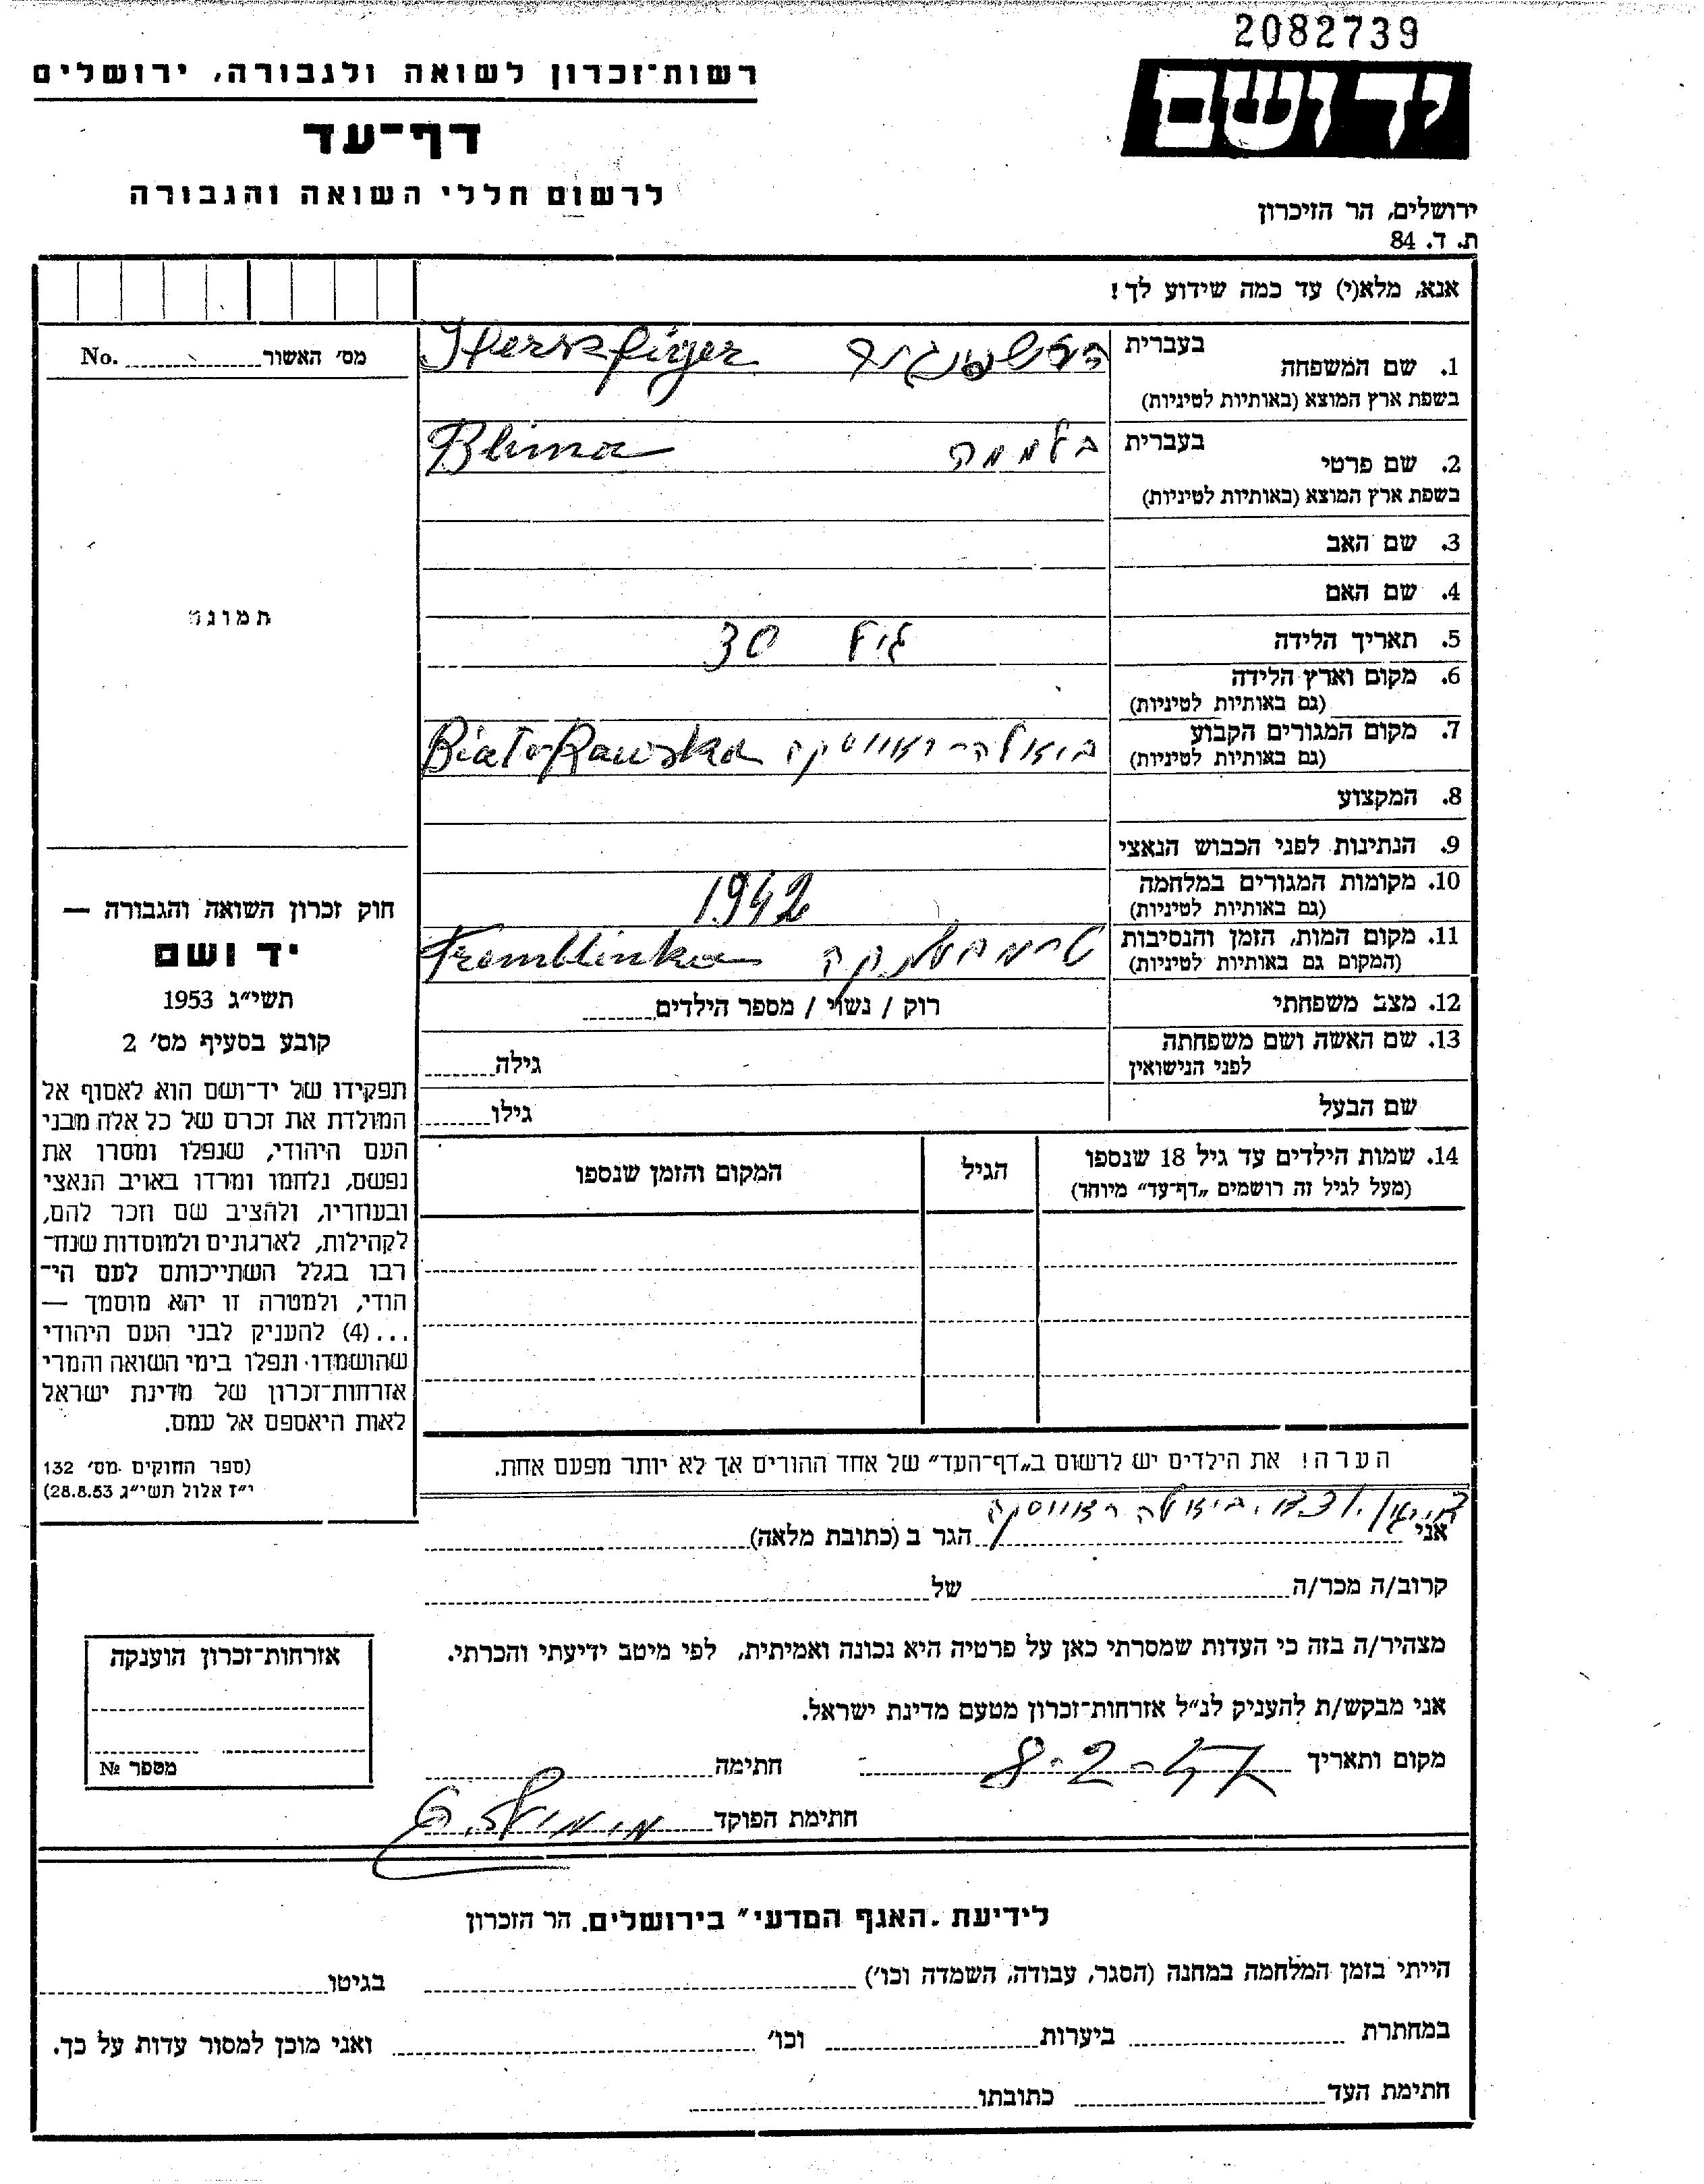 2082739
יד ושם
רשות־זכרון לשואה ולגבורה, ירושלים
דף־עד
לרשום חללי השואה והגבורה
ירושלים, הר הזיכרון
ת. ד. 84
אנא, מלא(י) עד כמה שידוע לך!
No. מס' האשור
תמונה
1. שם המשפחה
בעברית Herszfinger
בשפת ארץ המוצא (באותיות לטיניות)
2. שם פרטי
בעברית בלממה Blima
בשפת ארץ המוצא (באותיות לטיניות)
3. שם האב
4. שם האם
5. תאריך הלידה גיל 30
6. מקום וארץ הלידה
(גם באותיות לטיניות)
7. מקום המגורים הקבוע ביאלה־ראווסקה Biała Rawska
(גם באותיות לטיניות)
8. המקצוע
9. הנתינות לפני הכבוש הנאצי
10. מקומות המגורים במלחמה
(גם באותיות לטיניות)
1942
11. מקום המות, הזמן והנסיבות Tremblinka
(המקום גם באותיות לטיניות)
12. מצב משפחתי רוק / נשוי / מספר הילדים
13. שם האשה ושם משפחתה
לפני הנישואין גילה
שם הבעל גילו
14. שמות הילדים עד גיל 18 שנספו הגיל המקום והזמן שנספו
(מעל לגיל זה רושמים „דף־עד״ מיוחד)
הערה! את הילדים יש לרשום ב„דף־העד״ של אחד ההורים אך לא יותר מפעם אחת.
חוק זכרון השואה והגבורה —
יד ושם
תשי״ג 1953
קובע בסעיף מס' 2
תפקידו של יד־ושם הוא לאסוף אל
המולדת את זכרם של כל אלה מבני
העם היהודי, שנפלו ומסרו את
נפשם, נלחמו ומרדו באויב הנאצי
ובעוזריו, ולהציב שם וזכר להם,
לקהילות, לארגונים ולמוסדות שנח־
רבו בגלל השתייכותם לעם הי־
הודי, ולמטרה זו יהא מוסמך —
...(4) להעניק לבני העם היהודי
שהושמדו ונפלו בימי השואה והמרי
אזרחות־זכרון של מדינת ישראל
לאות היאספם אל עמם.
(ספר החוקים מס' 132
י״ז אלול תשי״ג 28.8.53)
ביאלה ראווסקה
אני הגר ב (כתובת מלאה)
קרוב/ה מכר/ה של
מצהיר/ה בזה כי העדות שמסרתי כאן על פרטיה היא נכונה ואמיתית, לפי מיטב ידיעתי והכרתי.
אני מבקש/ת להעניק לנ״ל אזרחות־זכרון מטעם מדינת ישראל.
מקום ותאריך חתימה
חתימת הפוקד
אזרחות־זכרון הוענקה
מספר №
לידיעת „האגף המדעי״ בירושלים. הר הזכרון
הייתי בזמן המלחמה במחנה (הסגר, עבודה, השמדה וכו') בגיטו
במחתרת ביערות וכו' ואני מוכן למסור עדות על כך.
חתימת העד כתובתו